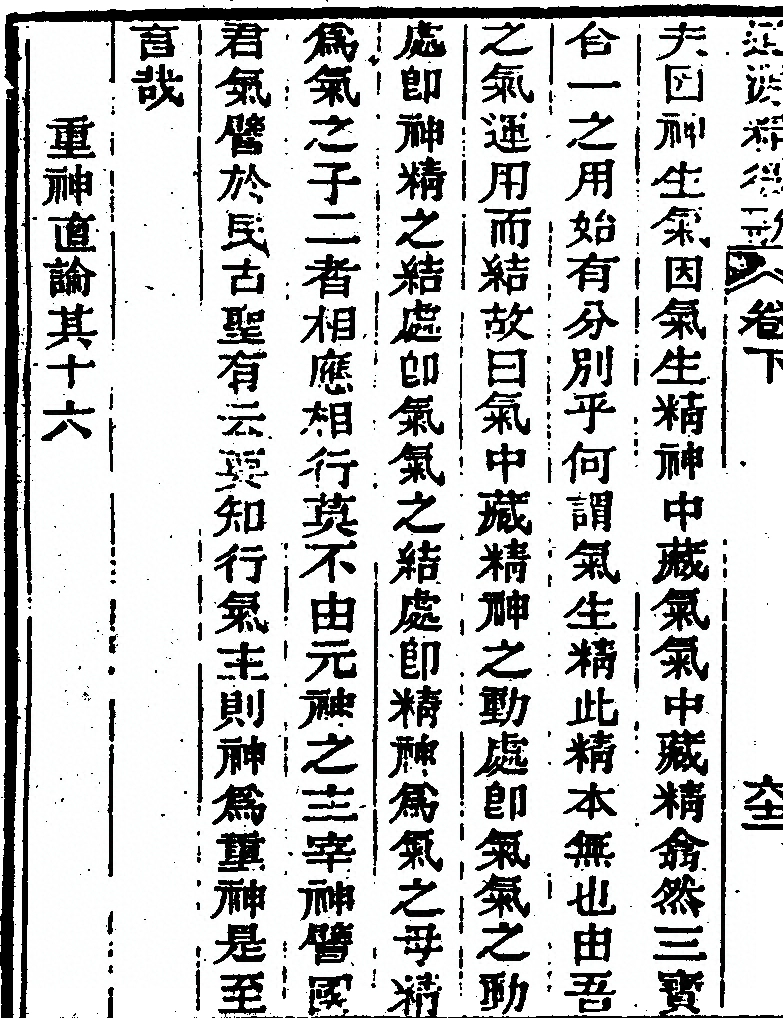 卷下
夫因神生氣因氣生精神中藏氣氣中藏精翕然三寶
合一之用始有分別乎何謂氣生精此精本無也由吾
之氣運用而結故曰氣中藏精神之動處卽氣氣之動
處卽神精之結處卽氣氣之結處卽精神爲氣之母精
爲氣之子二者相應相行莫不由元神之主宰神譬國
君氣譬於民古聖有云要知行氣主則神爲重神是至
言哉
重神直論其十六